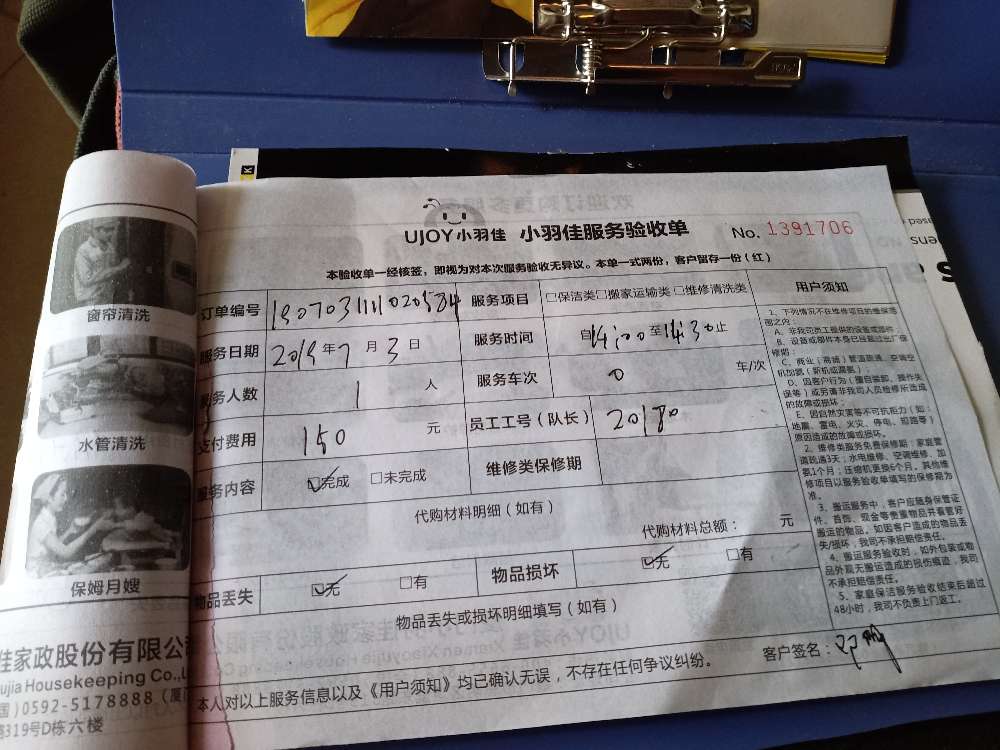 UJOY小羽佳 小羽佳服务验收单 No. 1391706
本验收单一经核签，即视为对本次服务验收无异议。本单一式两份，客户留存一份（红）
订单编号 服务项目 □保洁类□搬家运输类□维修清洗类
服务日期 2019年7月3日 服务时间 自14:00至14:30止
服务人数 1人 服务车次 0 车/次
支付费用 150元 员工工号（队长） 20180
服务内容 ☑完成 □未完成 维修类保修期
代购材料明细（如有）
代购材料总额： 元
物品丢失 ☑无 □有 物品损坏 ☑无 □有
物品丢失或损坏明细填写（如有）
本人对以上服务信息以及《用户须知》均已确认无误，不存在任何争议纠纷。
客户签名：
用户须知
1、下列情况不在维修项目的维保范围之内：
A、非我司员工提供的设备或部件
B、设备或部件本身已经超过出厂保修期；
C、商业（商铺）管道疏通、空调空机加氨（新机或漏氨）；
D、因客户行为（擅自装卸、操作失误等）或另请非我司人员检修所造成的故障或损坏；
E、因自然灾害等不可抗拒力（如：地震、雷电、火灾、停电、短路等）原因造成的故障或损坏。
2、维修类服务免费保修期：家庭管道疏通3天；水电维修、空调维修、加氨1个月；压缩机更换6个月。其他维修项目以服务验收单填写的保修期为准。
3、搬运服务中，客户应随身保管证件、首饰、现金等贵重物品并看管好搬运的物品。如因客户造成的物品丢失/损坏，我司不承担赔偿责任。
4、搬运服务验收时，如外包装或物品外观无搬运造成的损伤痕迹，我司不承担赔偿责任。
5、家庭保洁服务验收结束后超过48小时，我司不负责上门返工。
窗帘清洗
水管清洗
保姆月嫂
佳家政股份有限公
ujia Housekeeping Co.,L
0592-5178888
319号D栋六楼